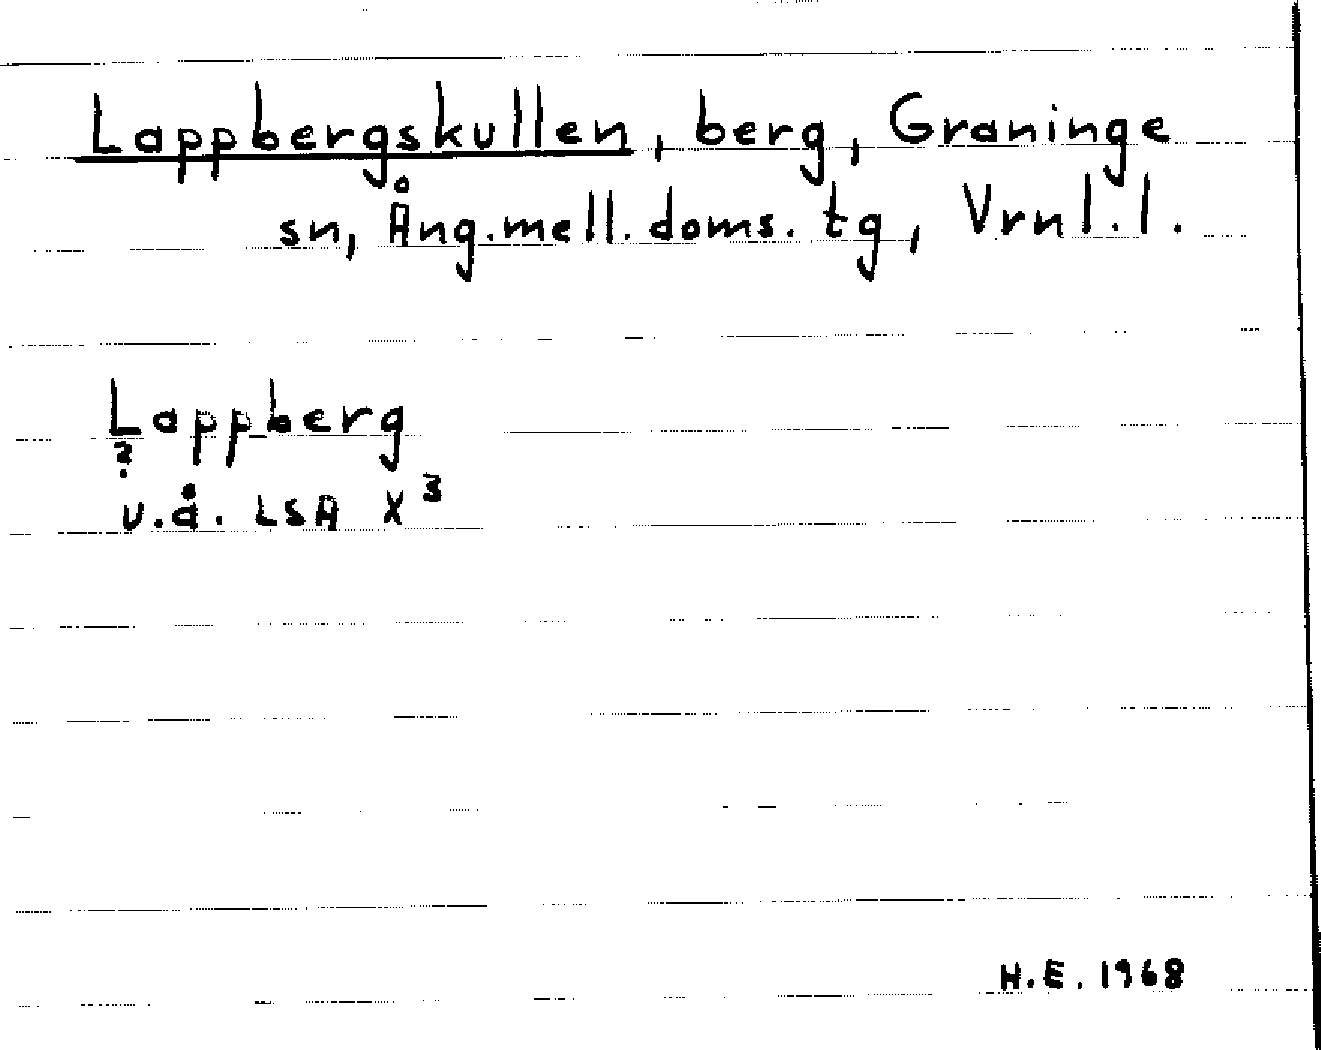 Lappbergskullen, berg, Graninge
sn, Ång.mell.doms.tg, Vrnl.l.
Lappberg
?
u.å. LSA X³
H.E. 1968